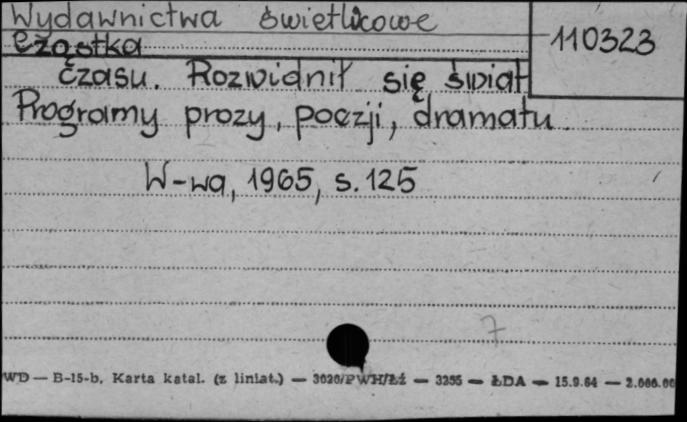 Wydawnictwa świetlicowe
110323
Cząstka
czasu. Rozwidnił się świat
Programy prozy, poezji, dramatu.
W-wa, 1965, s. 125
7
WD — B-15-b, Karta katal. (z liniat.) — 3020/PWH/Łź — 3255 — ŁDA — 15.9.64 — 2.000.00